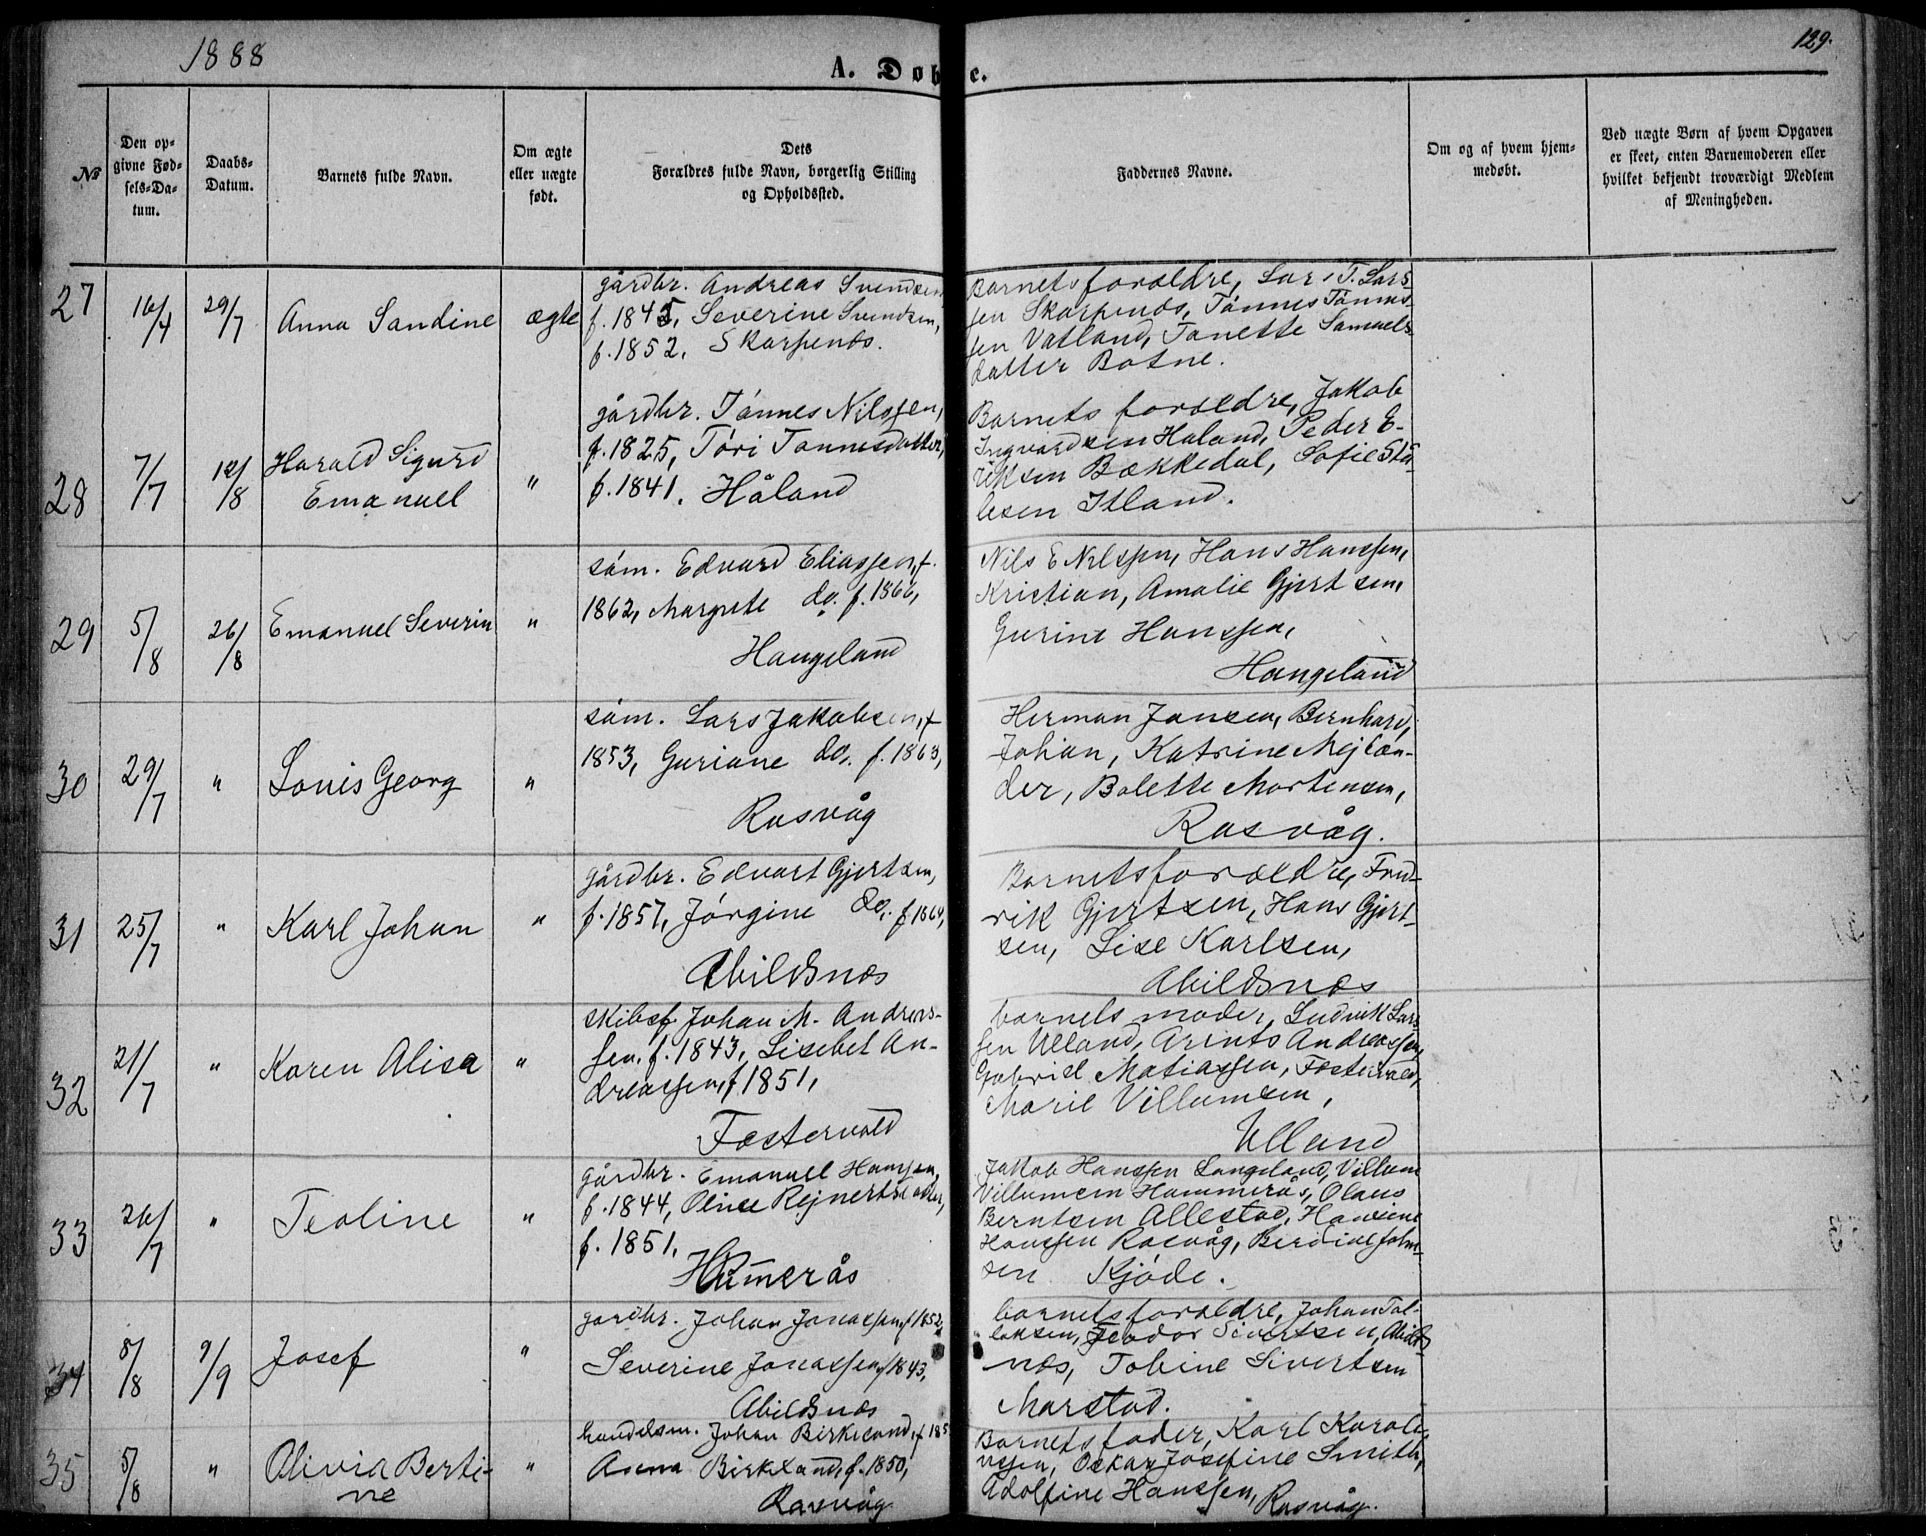 1888
A. Døbte.
129.
No
Den op-
givne Fød-
sels-Da-
tum.
Daabs-
Datum.
Barnets fulde Navn.
Om ægte
eller uægte
født.
Dets
Forældres fulde Navn, borgerlig Stilling
og Opholdssted.
Faddernes Navne.
Om og af hvem hjem-
medøbt.
Ved uægte Børn af hvem Opgaven
er skeet, enten Barnemoderen eller
hvilket bekjendt troværdigt Medlem
af Meningheden.
27
16/4
29/7
Anna Sandine
ægte
gårdbr. Andreas Svendsen
f. 1845, Severine Svendsen,
f. 1852, Skarpenæs.
Barnets forældre, Lars T. Lars-
sen Skarpenæs, Tønnes Tønnes-
sen Vatland, Tanette Samuels-
datter Botne.
28
7/7
12/8
Harald Sigurd
Emanuel
"
gårdbr. Tønnes Nilssen,
f. 1825, Tøri Tønnesdatter,
f. 1841. Håland
Barnets forældre, Jakob
Ingvardsen Håland, Peder E-
riksen Bækkedal, Sofie Stå-
lesen Itland.
29
5/8
26/8
Emanuel Severin
"
søm. Edvard Eliassen, f.
1862, Margrete do. f. 1866,
Haugeland
Nils E Nilssen, Hans Hanssen,
Kristian, Amalie Gjertsen,
Gurine Hanssen,
Haugeland
30
29/7
"
Louis Georg
"
søm. Lars Jakobsen, f
1853, Guriane do. f. 1863,
Rasvåg
Herman Jansen, Bernhard,
Johan, Katrine Mejlæn-
der, Bolette Mortensen,
Rasvåg.
31
25/7
"
Karl Johan
"
gårdbr. Edvart Gjertsen,
f. 1857, Jørgine do. f 1864,
Abildsnæs
Barnets forældre, Fred-
rik Gjertsen, Hans Gjert-
sen, Lise Karlsen,
Abildsnæs
32
21/7
"
Karen Alisa
"
skibsf. Johan M. Andreas-
sen. f. 1843, Lisebet An-
dreassen, f 1851,
Fæstervold
barnets moder, Ludvik Lars-
sen Ulland, Arints Andreassen,
Gabriel Matiassen, Fæstervold,
Marie Villumsen,
Ulland
33
26/7
"
Teoline
"
gårdbr. Emanuel Hanssen,
f. 1844, Olise Rejnertsdatter,
f. 1851,
Hamerås
Jakob Hanssen Langeland, Villum
Villumsen Hammerås, Olaus
Berntsen Allestad, Hansine
Hanssen Rasvåg, Berdine John-
sen Kjøde.
34
8/8
9/9
Josef
"
gardbr. Johan Jonassen, f 1852,
Severine Jonassen, f 1843,
Abildsnæs
barnets forældre, Johan Tol-
laksen, Teodor Sivertsen, Abilds-
næs, Tobine Sivertsen
Marstad.
35
5/8
"
Olivia Berti-
ne
"
handelsm. Johan Birkeland, f 185
Anna Birkeland, f. 1850,
Rasvåg
Barnets fader, Karl Karoli-
ussen, Oskar, Josefine Smith,
Adolfine Hanssen, Rasvåg.